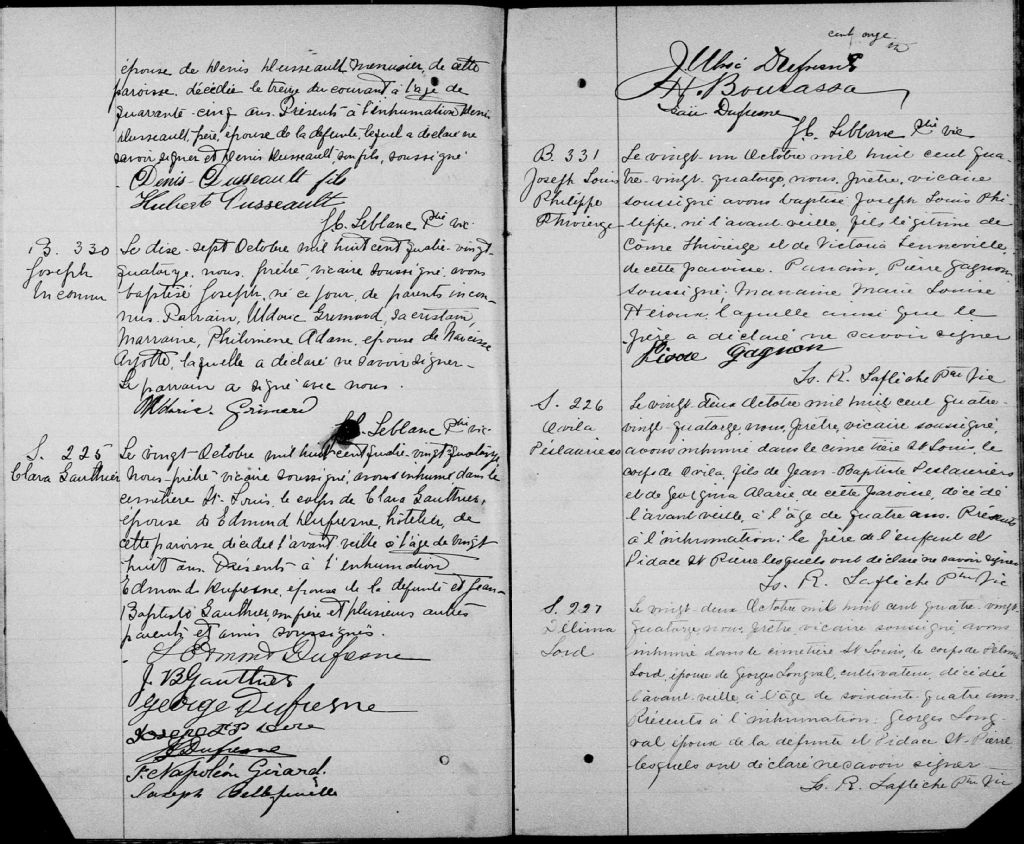 épouse de Denis Dusseault menusier, de cette
paroisse décédée le treize du courant à l'age de
quarante-cinq ans. Présents à l'inhumation Denis
Dusseault, père, epouse de la défunte, lequel a déclaré ne
savoir signer et Denis Dusseault, son fils, soussigné
Denis Dusseault fils
Hubert Dusseault
H. Leblanc Ptre vic
B. 330
Joseph
Inconnu
Le dix-sept Octobre mil huit cent quatre-vingt-
quatorze, nous prêtre vicaire soussigné, avons
baptisé Joseph, né ce jour, de parents incon-
nus. Parrain, Uldoric Grimard, sacristain,
Marraine, Philimène Adam, épouse de Narcisse
Ayotte, laquelle a déclaré ne savoir signer.-
Le parrain a signé avec nous.
Uldoric Grimard
H. Leblanc Ptre vic
S. 225
Clara Gauthier
Le vingt Octobre mil huit cent quatre-vingt quatorze
Nous-prêtre vicaire soussigné, avons inhumé dans le
cemetière St. Louis, le corps de Clara Gauthier,
épouse de Edmund Dufresne, hôtelier, de
cette paroisse décédée l'avant veille à l'âge de vingt
huit ans. Présents à l'enhumation
Edmond Dufresne, epouse de la defunte et Jean-
Baptiste Gauthier, son père et plusieurs autres
parents et amis soussignés.
Edmont Dufresne
J. B Gauthier
George Dufresne
Joseph
Dufresne
F. Napoléon Girard
Joseph Bellefeuille
cent onze
Dufresne
H. Bourassa
Dufresne
H. Leblanc Ptre vic
B. 331
Joseph Louis
Philippe
Thivierge
Le vingt-un Octobre mil huit cent qua-
tre-vingt-quatorze, nous, prêtre, vicaire
soussigné avons baptisé Joseph Louis Phi-
lippe, né l'avant veille, fils légitime de
Côme Thivierge et de Victoria Lenneville,
de cette paroisse. Parrain, Pierre Gagnon
soussigné, Marraine Marie Louise
Héroux, laquelle ainsi que le
père a déclaré ne savoir signer
Pierre Gagnon
Ls. R. Laflèche Ptre Vic
S. 226
Ovila
Deslauriers
Le vingt-deux Octobre mil huit cent quatre-
vingt-quatorze, nous, prêtre, vicaire soussigné,
avons inhumé dans le cimetière St Louis, le
corps de Ovila, fils de Jean-Baptiste Deslauriers
et de Georgina Alarie de cette paroisse, décédé
l'avant veille, à l'âge de quatre ans. Présents
à l'inhumation: le père de l'enfant et
Didace St Pierre lesquels ont déclaré ne savoir signer
Ls. R. Laflèche Ptre Vic
S. 227
Délima
Lord
Le vingt-deux Octobre mil huit cent quatre-vingt-
quatorze, nous, prêtre, vicaire soussigné, avons
inhumé dans le cimetière St Louis, le corps de Délima
Lord, épouse de Georges Longval, cultivateur, décédée
l'avant-veille, à l'âge de soixante-quatre ans.
Présents à l'inhumation: Georges Long-
val époux de la défunte et Didace St-Pierre
lesquels ont déclaré ne savoir signer
Ls. R. Laflèche Ptre Vic